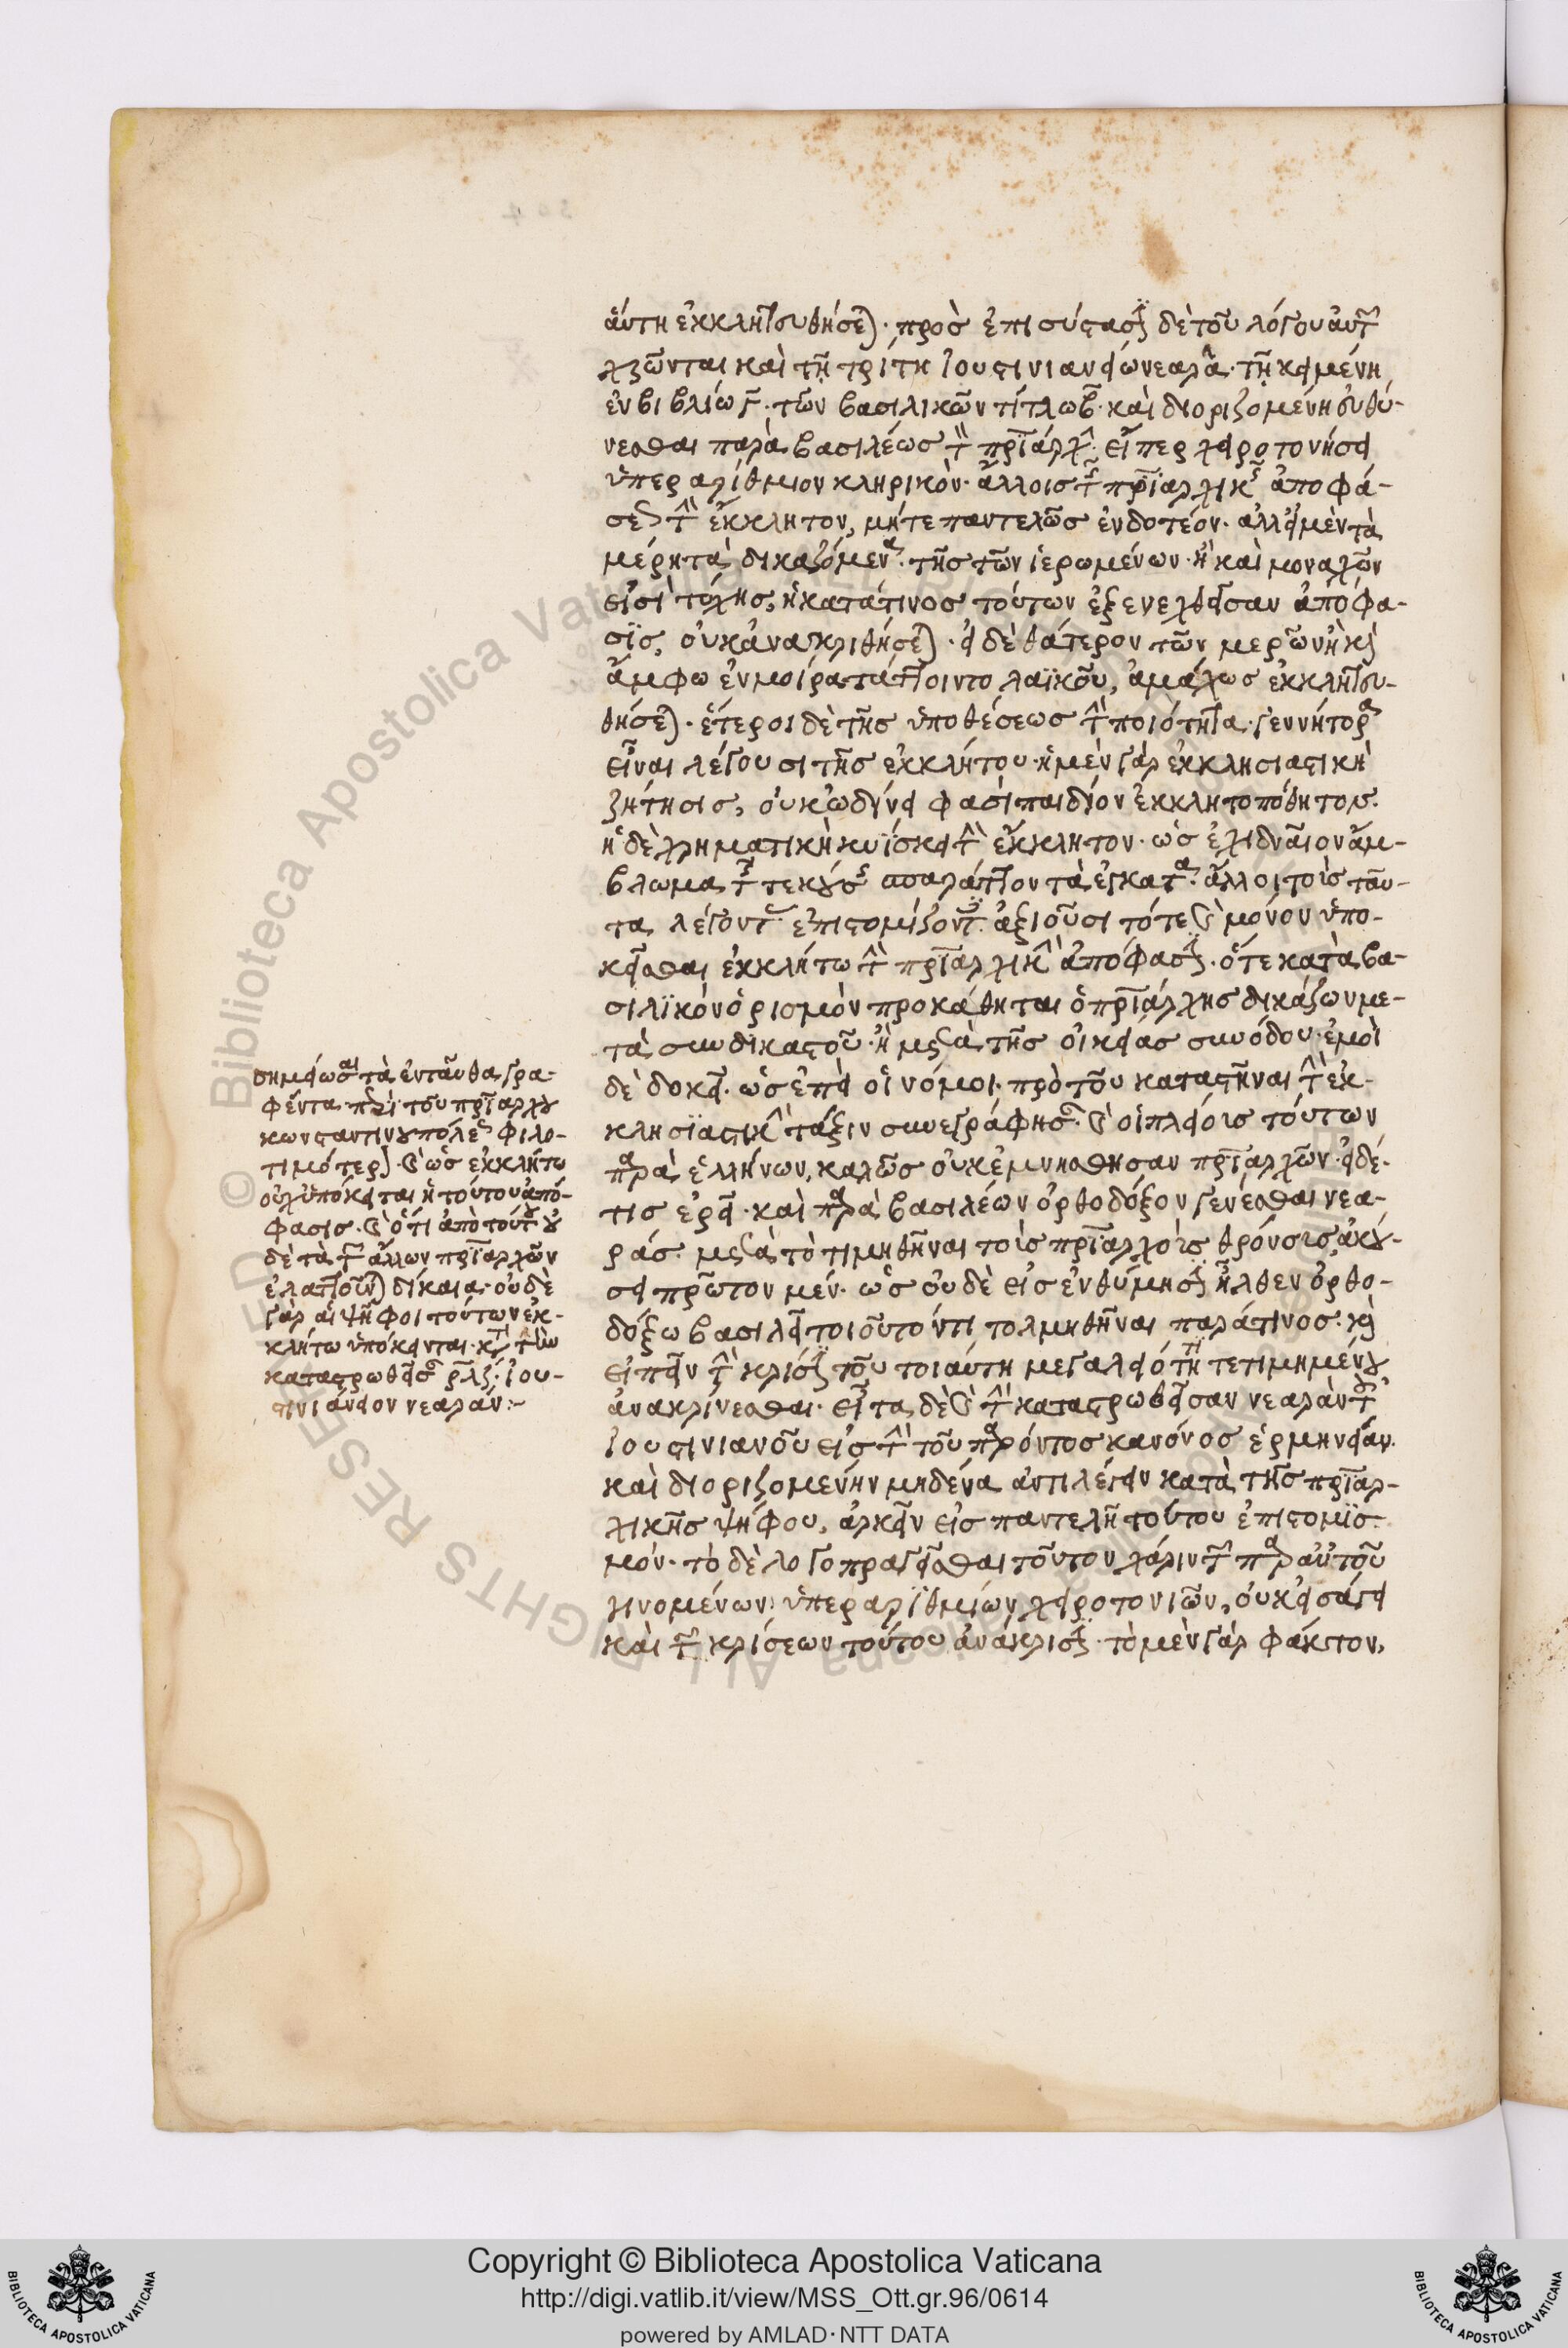 αὕτη ἐκκλητευθήσεται· πρὸς ἐπισύστασιν δὲ τοῦ λόγου αὐτῶν
χρῶνται καὶ τῇ τρίτῃ ἰουστινιανείω νεαρᾶ· τῇ κειμένη
ἐν βιβλίω γ· τῶν βασιλικῶν τίτλω β· καὶ διοριζομένη εὐθύ-
νεσθαι παρὰ βασιλέως τὸν πριάρχην· εἴπερ χειροτονήσει
ὑπεράριθμιον κληρικόν· ἄλλοις τῶν πριαρχικῶν ἀποφά-
σεων τὴν ἔκκλητον, μήτε παντελῶς ἐνδοτέον· ἀλλ' εἰ μὲν τὰ
μέρη τὰ δικαζόμενα· τῆς τῶν ἱερωμένων· ἢ καὶ μοναχῶν
εἰσὶ τύχης, ἢ κατά τινος τούτων ἐξενεχθεῖσαν ἀπόφα-
σις, οὐκ ἀνακριθήσεται· εἰ δὲ θάτερον τῶν μερῶν ἢ καὶ
ἄμφω ἐν μοίρα τάττοιντο λαϊκοῦ, ἀμάχως ἐκκλητευ-
θήσεται· ἕτεροι δὲ τῆς ὑποθέσεως τὴν ποιότητα· γεννήτορα
εἶναι λέγουσι τῆς ἐκκλήτου· ἡ μὲν γὰρ ἐκκλησιαστικὴ
ζήτησις, οὐκ ὠδίνει φασὶ παιδίον ἐκκλητοπόθητον·
ἡ δὲ χρηματικὴ κυΐσκει τὴν ἔκκλητον· ὡς ἐχιδναῖον ἄμ-
βλωμα τῆς τεκούσης σπαράττον τὰ ἔγκατα· ἄλλοι τοὺς ταῦ-
τα λέγοντας ἐπιστομίζοντες ἀξιοῦσι τότε καὶ μόνον ὑπο-
κεῖσθαι ἐκκλήτω τὴν πριαρχικὴν ἀπόφασιν· ὅτε κατὰ βα-
σιλικὸν ὁρισμὸν προκάθηται ὁ πριάρχης δικάζων με-
τὰ συνδικαστοῦ· ἢ μετὰ τῆς οἰκείας συνόδου· ἐμοὶ
δὲ δοκεῖ· ὡς ἐπεὶ οἱ νόμοι πρὸ τοῦ καταστῆναι τὴν ἐκ-
κλησιαστικὴν τάξιν συνεγράφησαν· καὶ οἱ πλείους τούτων
παρὰ ἑλλήνων, καλῶς οὐκ ἐμνήσθησαν πριαρχῶν· εἰ δέ
τις ἐρεῖ· καὶ παρὰ βασιλέων ὀρθοδόξων γενέσθαι νεα-
ράς· μετὰ τὸ τιμηθῆναι τοὺς πριαρχικοὺς θρόνους, ἀκού-
σει πρῶτον μέν· ὡς οὐδὲ εἰς ἐνθύμησιν ἦλθεν ὀρθο-
δόξω βασιλεῖ τοιοῦτό τι τολμηθῆναι παρά τινος· καὶ
εἰπεῖν τὴν κρίσιν τοῦ τοιαύτη μεγαλειότητι τετιμημένου
ἀνακρίνεσθαι· εἶτα δὲ καὶ τὴν καταστρωθεῖσαν νεαρὰν τοῦ
ἰουστινιανοῦ εἰς τὴν τοῦ παρόντος κανόνος ἑρμηνείαν·
καὶ διοριζομένην μηδένα ἀντιλέγειν κατὰ τῆς πριαρ-
χικῆς ψήφου, ἀρκεῖν εἰς παντελῆ τούτου ἐπιστομισ-
μόν· τὸ δὲ λογοπραγεῖσθαι τοῦτον χάριν τῶν παρ' αὐτοῦ
γινομένων ὑπεραριθμίων χειροτονιῶν, οὐκ εἰσάγει
καὶ τῶν κρίσεων τούτου ἀνάκρισιν· τὸ μὲν γὰρ φάκτον,
σημείωσαι τὰ ἐνταῦθα γρα-
φέντα περὶ τοῦ πριάρχου
κωνσταντινουπόλεως φιλο-
τιμότερον· καὶ ὡς ἐκκλήτω
οὐχ ὑπόκειται ἡ τούτου ἀπό-
φασις· καὶ ὅτι ἀπὸ τούτου οὐ
δὲ τὰ τῶν ἄλλων πριαρχῶν
ἐλαττοῦνται δίκαια· οὐδὲ
γὰρ αἱ ψῆφοι τούτων ἐκ-
κλήτω ὑπόκεινται κατὰ τὴν
καταστρωθεῖσαν ρλζ· ἰου-
στινιάνειον νεαράν:-
Copyright © Biblioteca Apostolica Vaticana
http://digi.vatlib.it/view/MSS_Ott.gr.96/0614
powered by AMLAD·NTT DATA